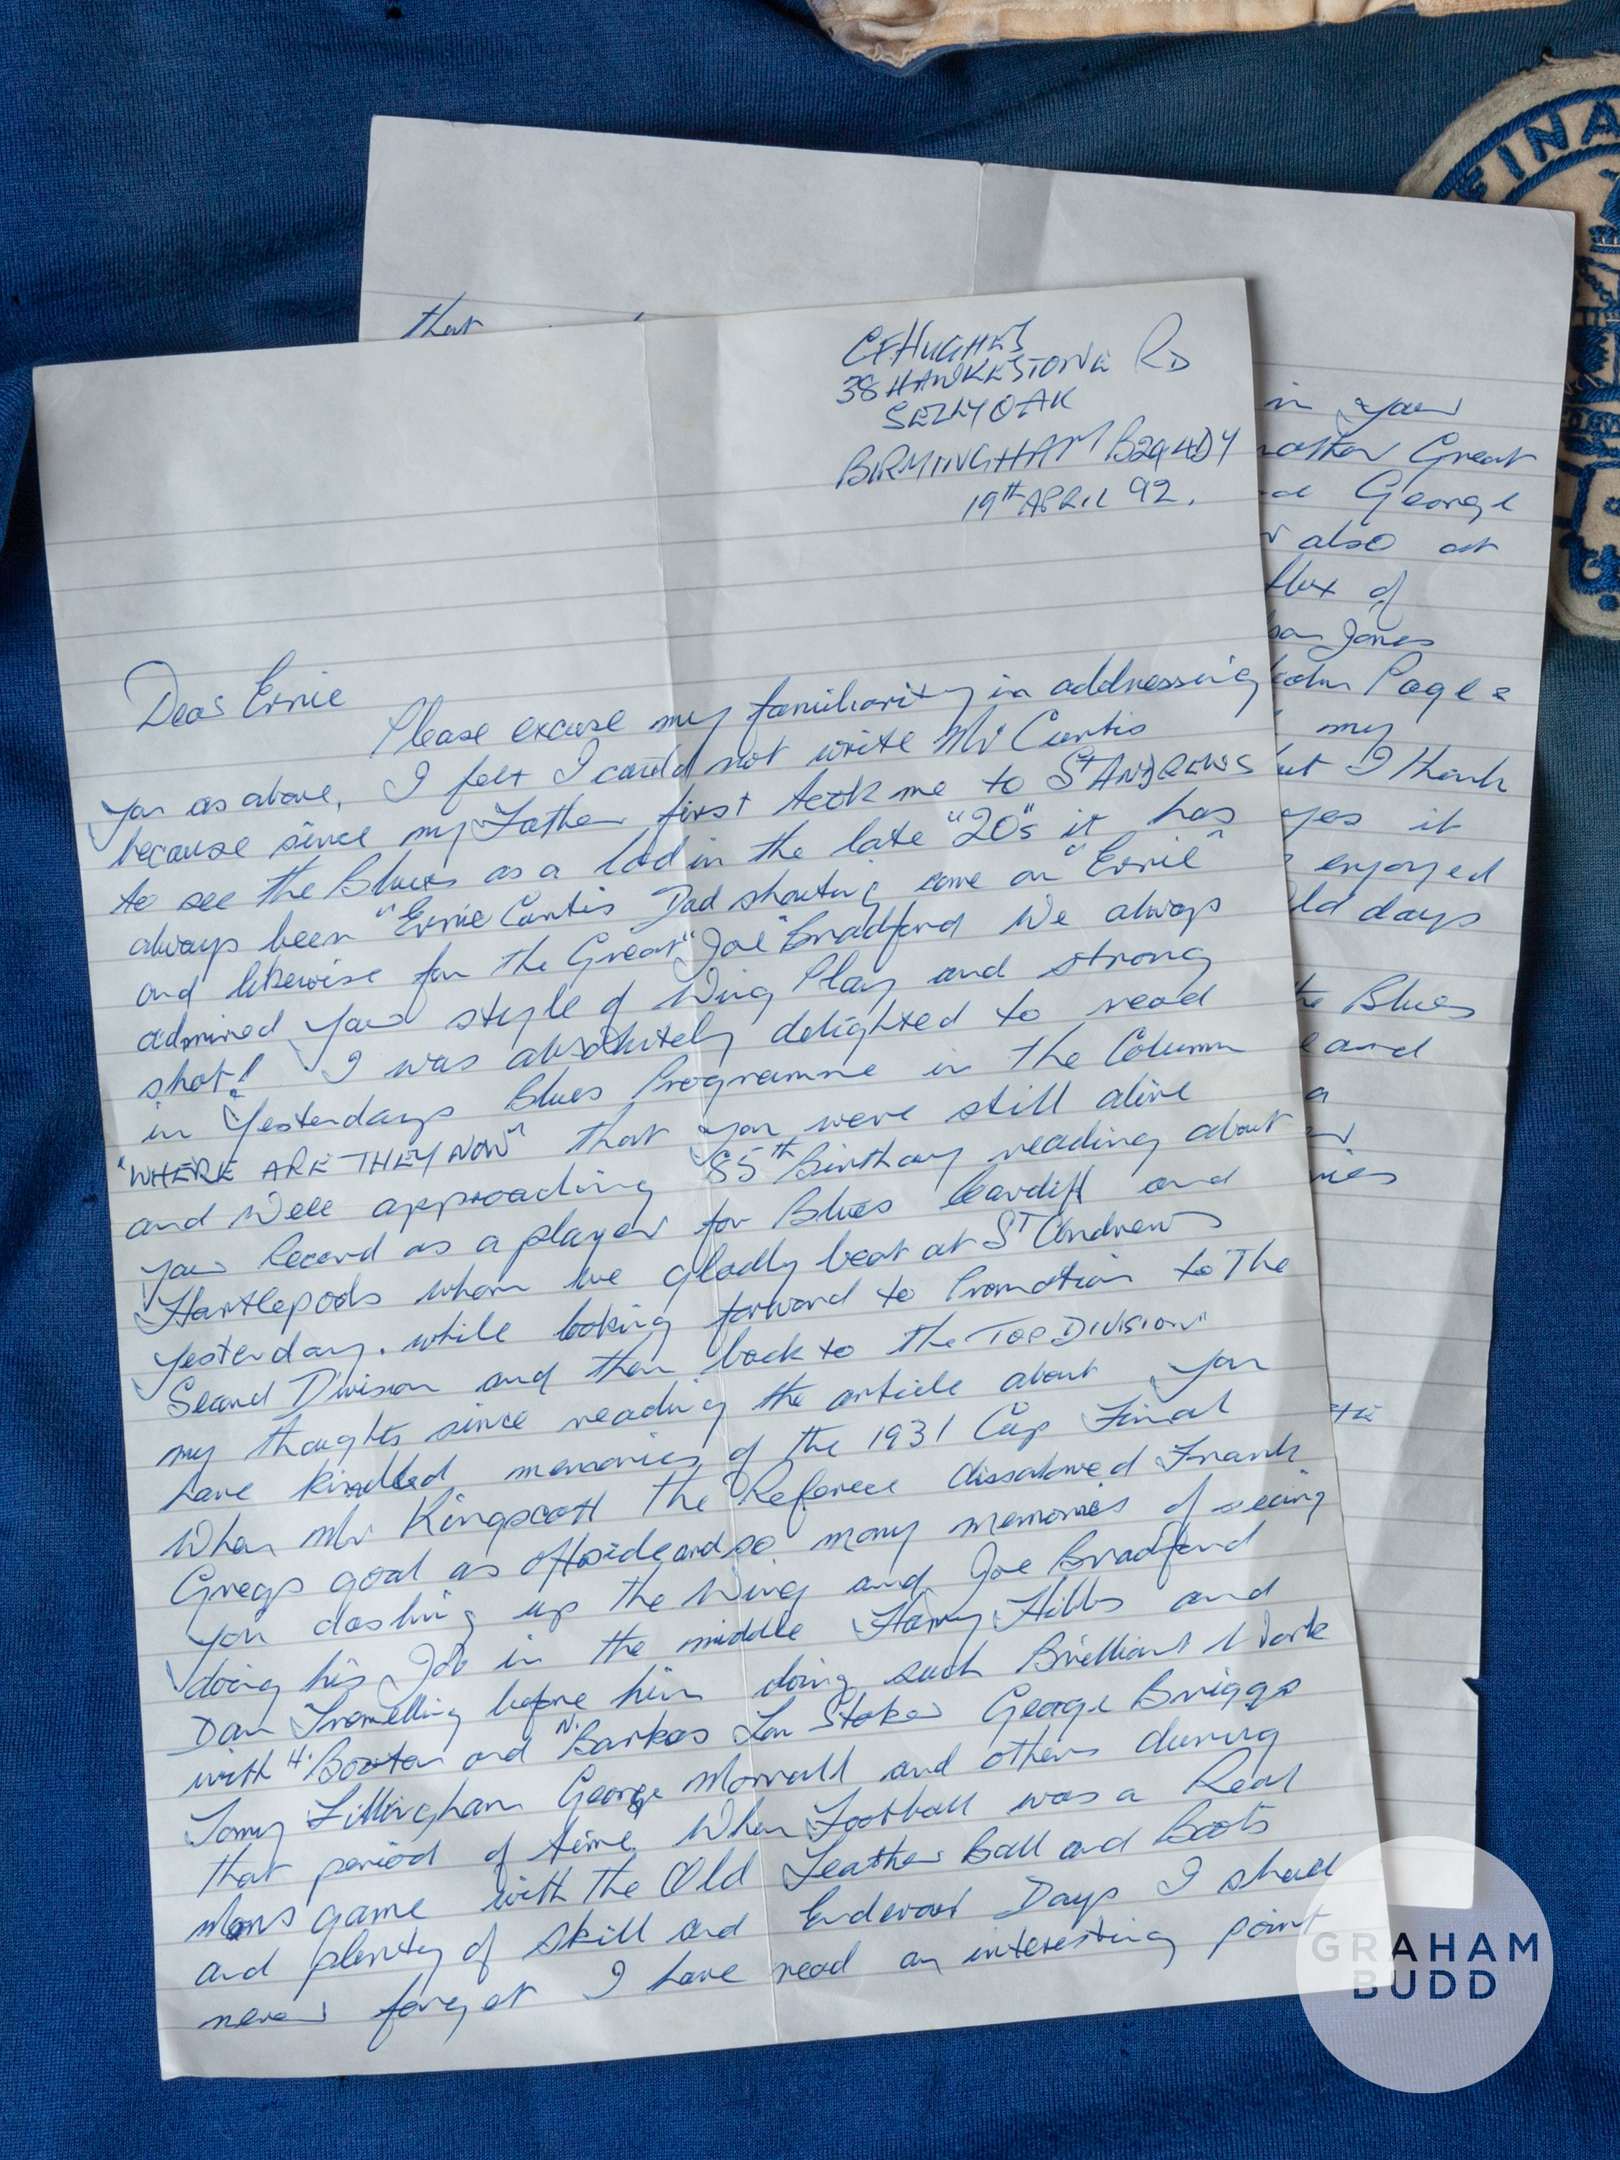 C F. HUGHES
38 HAWKESTONE RD
SELLY OAK
BIRMINGHAM B29 4DY
19th APRIL 92.
Dear Ernie
Please excuse my familiarity in addressing
you as above, I felt I could not write Mr Curtis
because since my Father first took me to St ANDREWS
to see the Blues as a lad in the late "20"s it has
always been "Ernie Curtis Dad shouting come on "Ernie"
and likewise for the Great "Joe" Bradford We always
admired your style of Wing Play and strong
shot! I was absolutely delighted to read
in Yesterdays Blues Programme in the Column
"WHERE ARE THEY NOW" that you were still alive
and Well approaching 85th Birthday reading about
your Record as a player for Blues Cardiff and
Hartlepools whom we gladly beat at St Andrews
yesterday. while looking forward to Promotion to The
Second Division and then back to the TOP DIVISION"
my thoughts since reading the article about you
have kindled memories of the 1931 Cup Final
When Mr Kingscott the Referee dissalowed Frank
Gregs goal as offside and so many memories of seeing
you dashing up the Wing and Joe Bradford
doing his Job in the middle Harry Hibbs and
Dan Tremelling before him doing such Brilliant Work
with H. Booton and N. Barkas Lou Stoker George Briggs
Tommy Fillingham George Morrall and others during
that period of time When Football was a Real
mans game with the Old Leather Ball and Boots
and plenty of skill and Endevour Days I shall
never forget I have read an interesting point
that
in your
another Great
George
also at
of
Jones
Page &
my
but I think
yes it
enjoyed
old days
the Blues
and
a
FINA
GRAHAM
BUDD